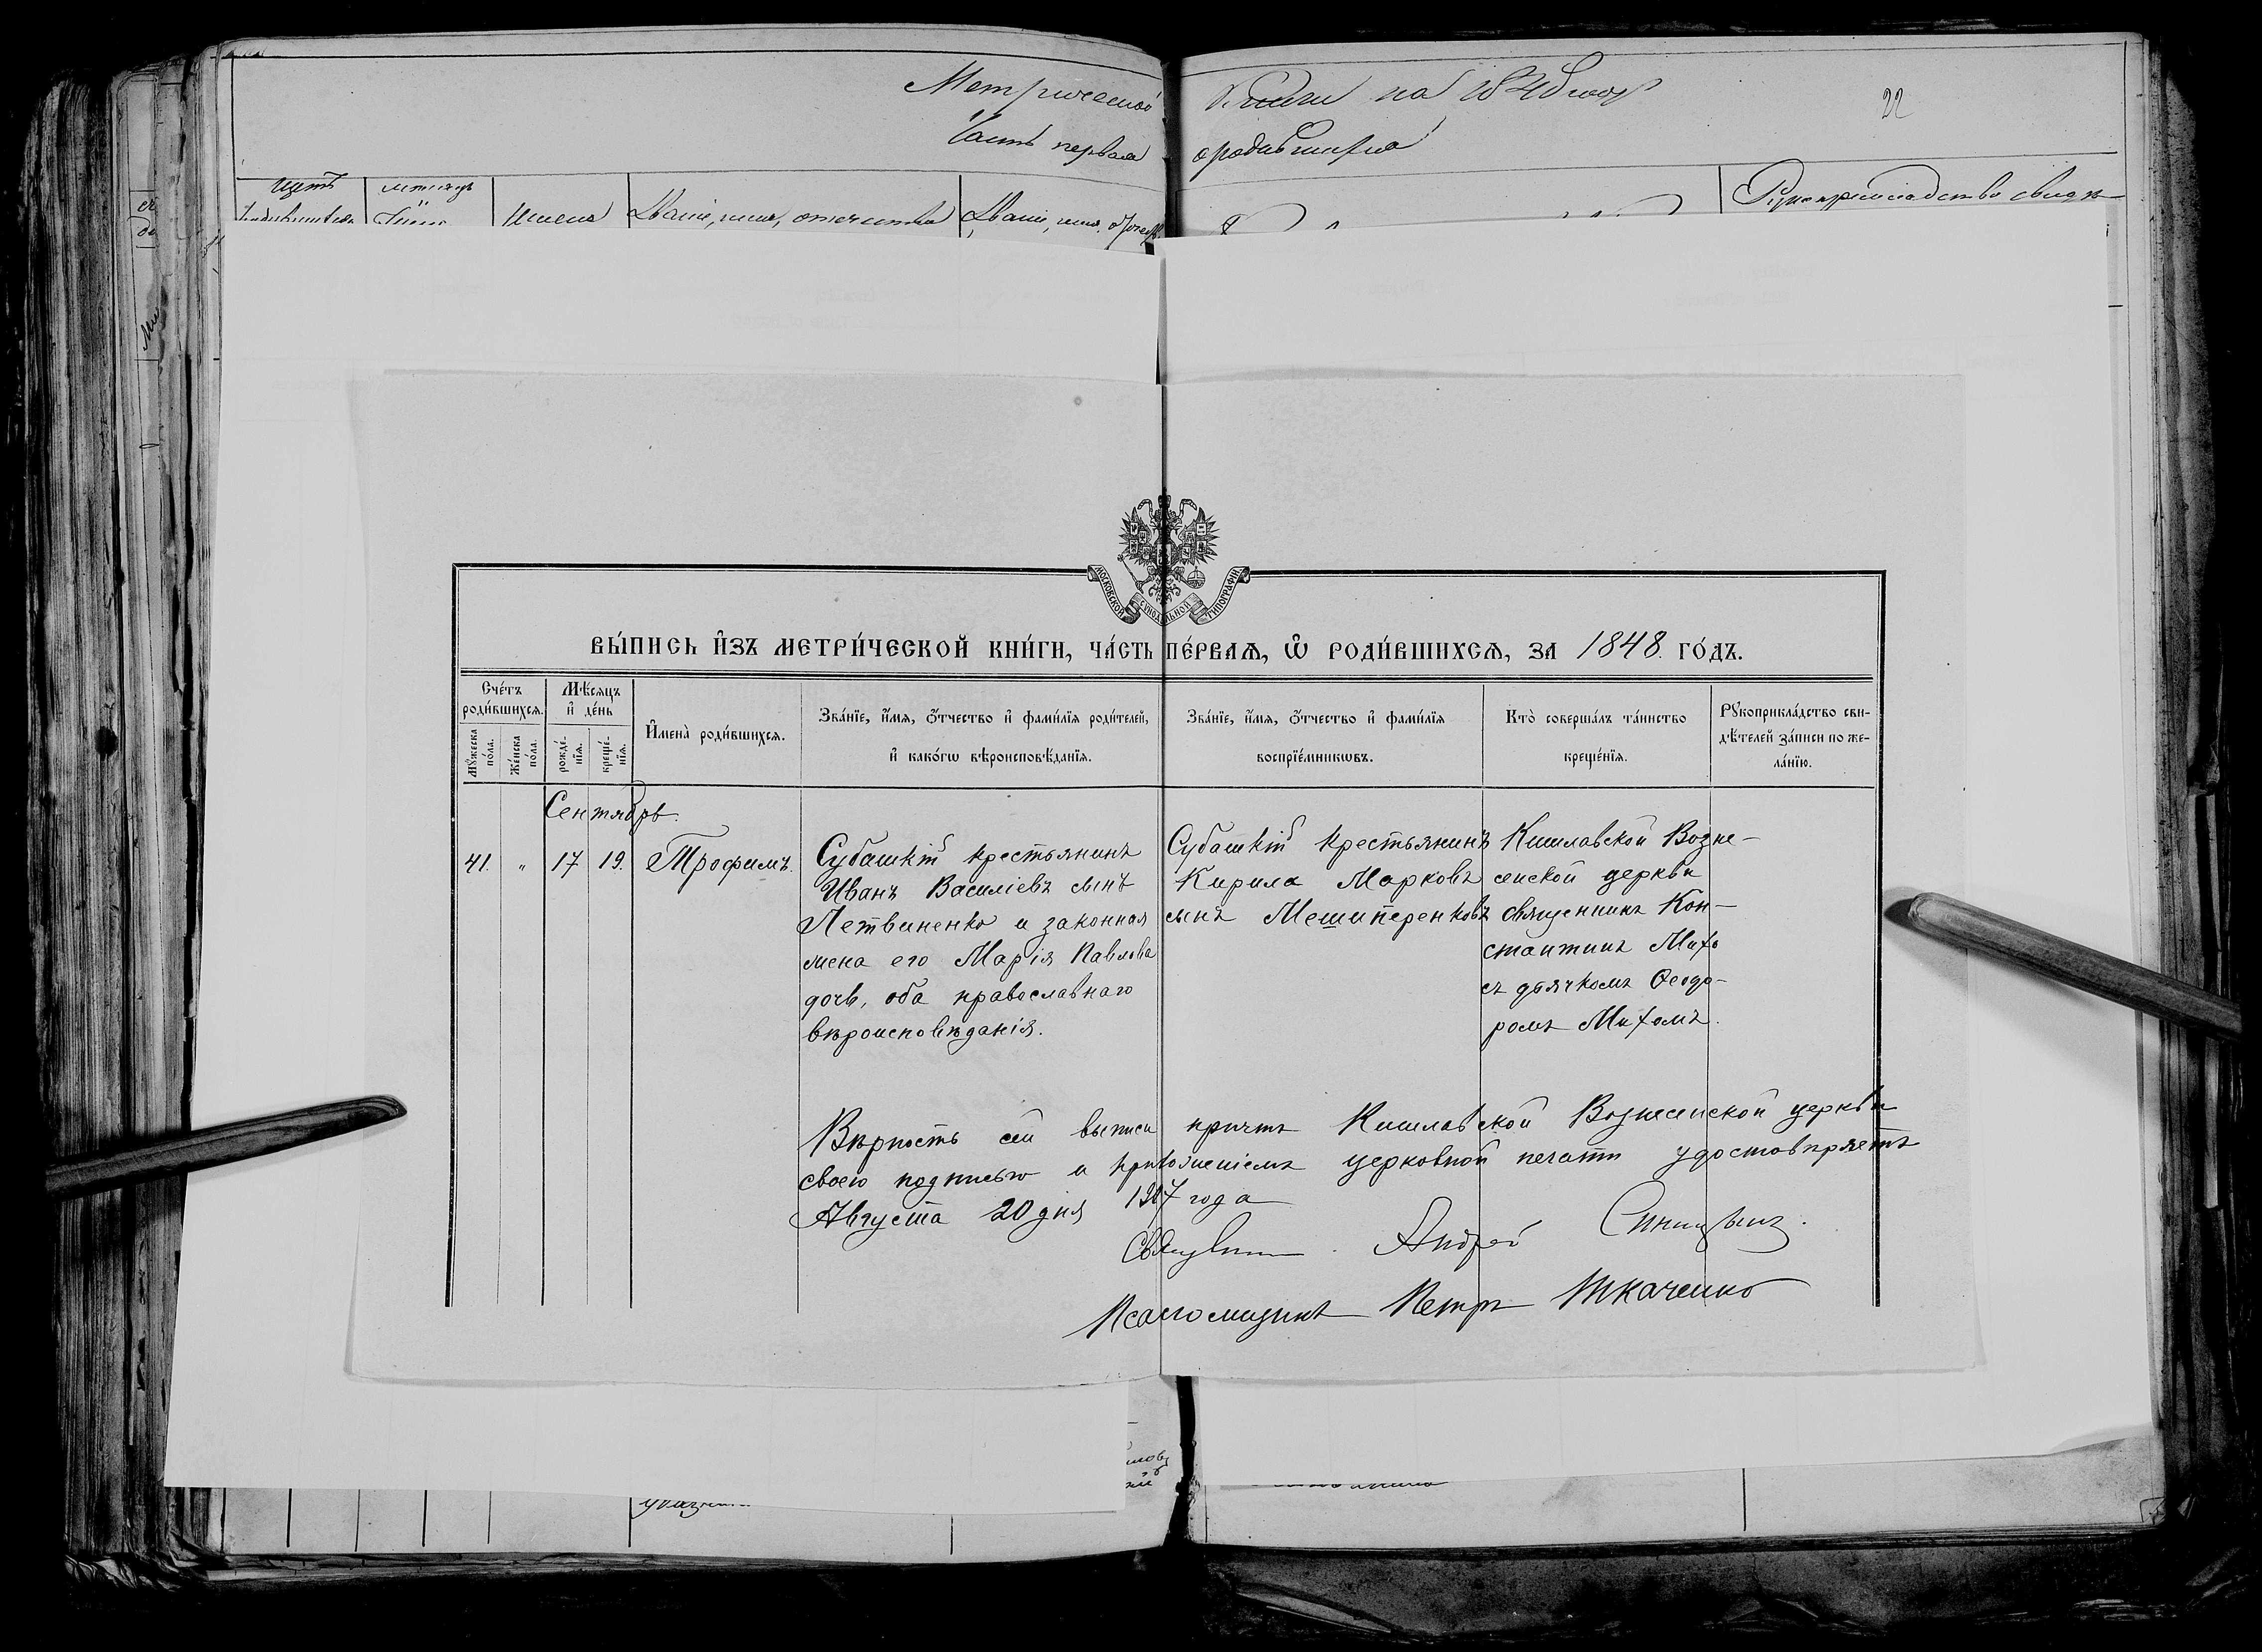 Метрической Книги на 1848 годъ
22
Часть первая о родившихся
Щетъ
мѣсяцъ
Рукоприкладство свидѣ-
Имена
Званіе, имя, отечество
Званіе, имя, отечес.
МОСКОВСКОЙ СѴНОДАЛЬНОЙ ТИПОГРАФІИ
ВЫ́ПИСЬ И҆ЗЪ МЕТРИ́ЧЕСКОЙ КНИ́ГИ, ЧА́СТЬ ПЕ́РВАѦ, Ѡ҆ РОДИ́ВШИХСѦ, ЗА 1848. ГО́ДЪ.
Сче́тъ роди́вшихсѧ.
Мꙋ́жеска по́ла.
Же́нска по́ла.
Мѣ́сѧцъ и҆ де́нь
рожде́-нїѧ.
креще́-нїѧ.
И҆мена̀ роди́вшихсѧ.
Зва́нїе, и҆́мѧ, ѻ҆́тчество и҆ фами́лїѧ роди́телей,
и҆ како́гѡ вѣроисповѣ́данїѧ.
Зва́нїе, и҆́мѧ, ѻ҆́тчество и҆ фами́лїѧ
воспрїе́мникѡвъ.
Кто̀ соверша́лъ та́инство
креще́нїѧ.
Рꙋкоприкла́дство сви-
дѣ́телей за́писи по же-
ла́нїю.
Сентябрь.
41. " 17 19. Трофимъ.
Субашкій крестьянинъ
Иванъ Василіевъ сынъ
Летвиненко и законная
жена его Марія Павлова
дочь, оба православнаго
вѣроисповѣданія.
Субашкій крестьянинъ
Кирила Марковъ
сынъ Мешитеренковъ
Кишлавской Возне-
сенской церкви
священникъ Кон-
стантинъ Михо
съ дьячкомъ Ѳеодо-
ромъ Михомъ.
Вѣрность сей выписи причтъ Кишлавской Вознесенской церкви
своею подписью и приложеніемъ церковной печати удостовѣряетъ
Августа 20 дня 1917 года
Священникъ Андрей Синицынъ.
Псаломщикъ Петръ Ткаченко